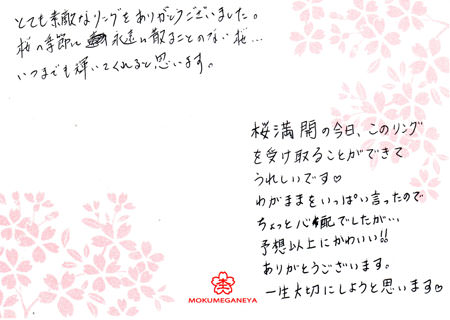 とても素敵なリングをありがとうございました。
桜の季節に 永遠に散ることのない桜…
いつまでも輝いてくれると思います。
桜満開の今日、このリング
を受け取ることができて
うれしいです♡
わがままをいっぱい言ったので
ちょっと心配でしたが…
予想以上にかわいい!!
ありがとうございます。
一生大切にしようと思います♡
MOKUMEGANEYA